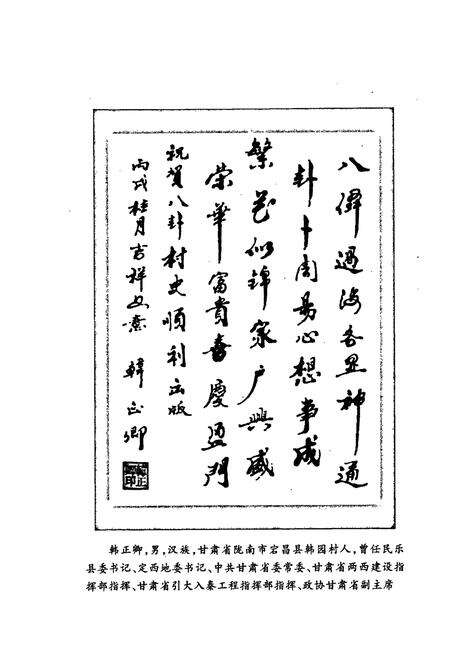 八僊過海各显神通
卦卜周易心想事成
繁花似锦家户興盛
荣華富貴喜慶盈門
祝賀八卦村史順利出版
丙戌桂月吉祥如意 韓正卿
韩正卿,男,汉族,甘肃省陇南市宕昌县韩园村人,曾任民乐
县委书记、定西地委书记、中共甘肃省委常委、甘肃省两西建设指
挥部指挥、甘肃省引大入秦工程指挥部指挥、政协甘肃省副主席